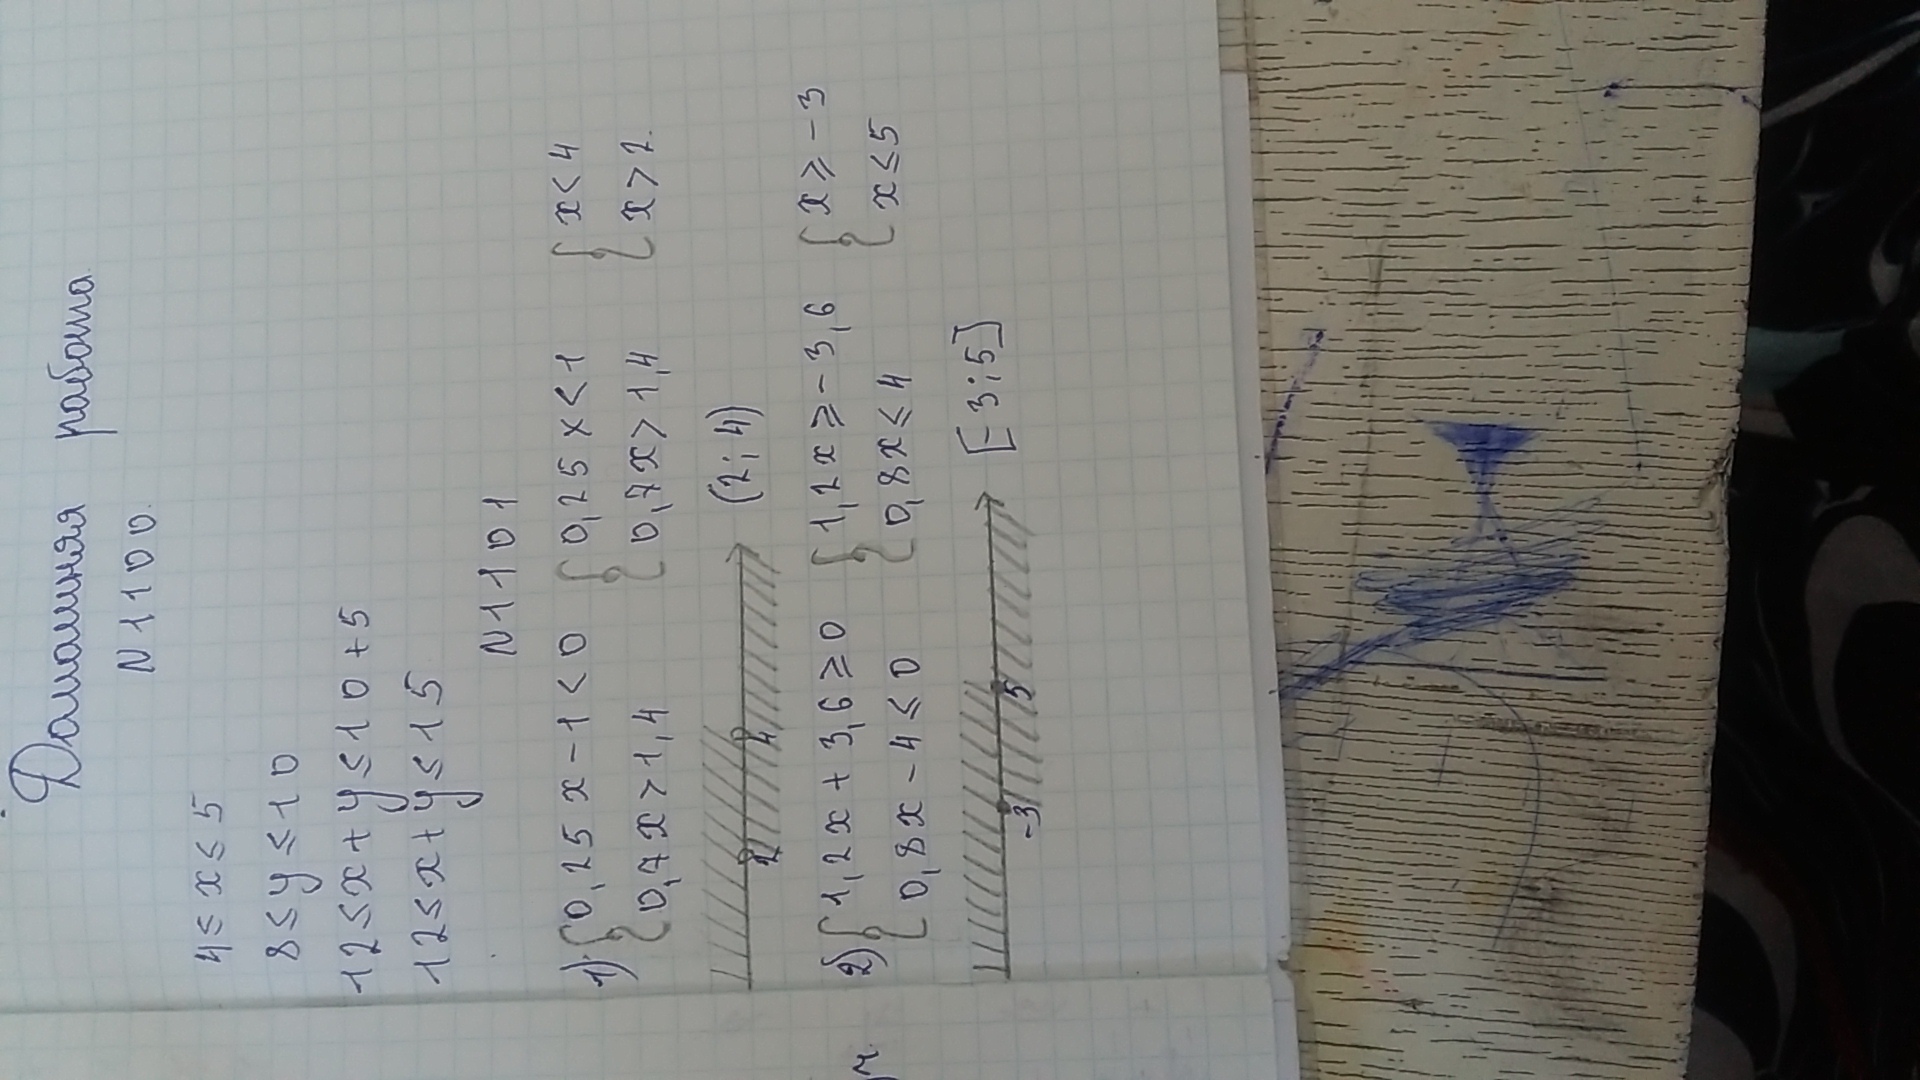 Домашняя работа
N 1100.
4 ≤ x ≤ 5
8 ≤ y ≤ 10
12 ≤ x + y ≤ 10 + 5
12 ≤ x + y ≤ 15
N 1101
1) { 0,25 x - 1 < 0 { 0,25 x < 1 { x < 4
0,7x > 1,4 0,7x > 1,4 x > 2.
2 4 (2; 4)
2) { 1,2x + 3,6 ≥ 0 { 1,2x ≥ -3,6 { x ≥ -3
0,8x - 4 ≤ 0 0,8x ≤ 4 x ≤ 5
-3 5 [-3; 5]